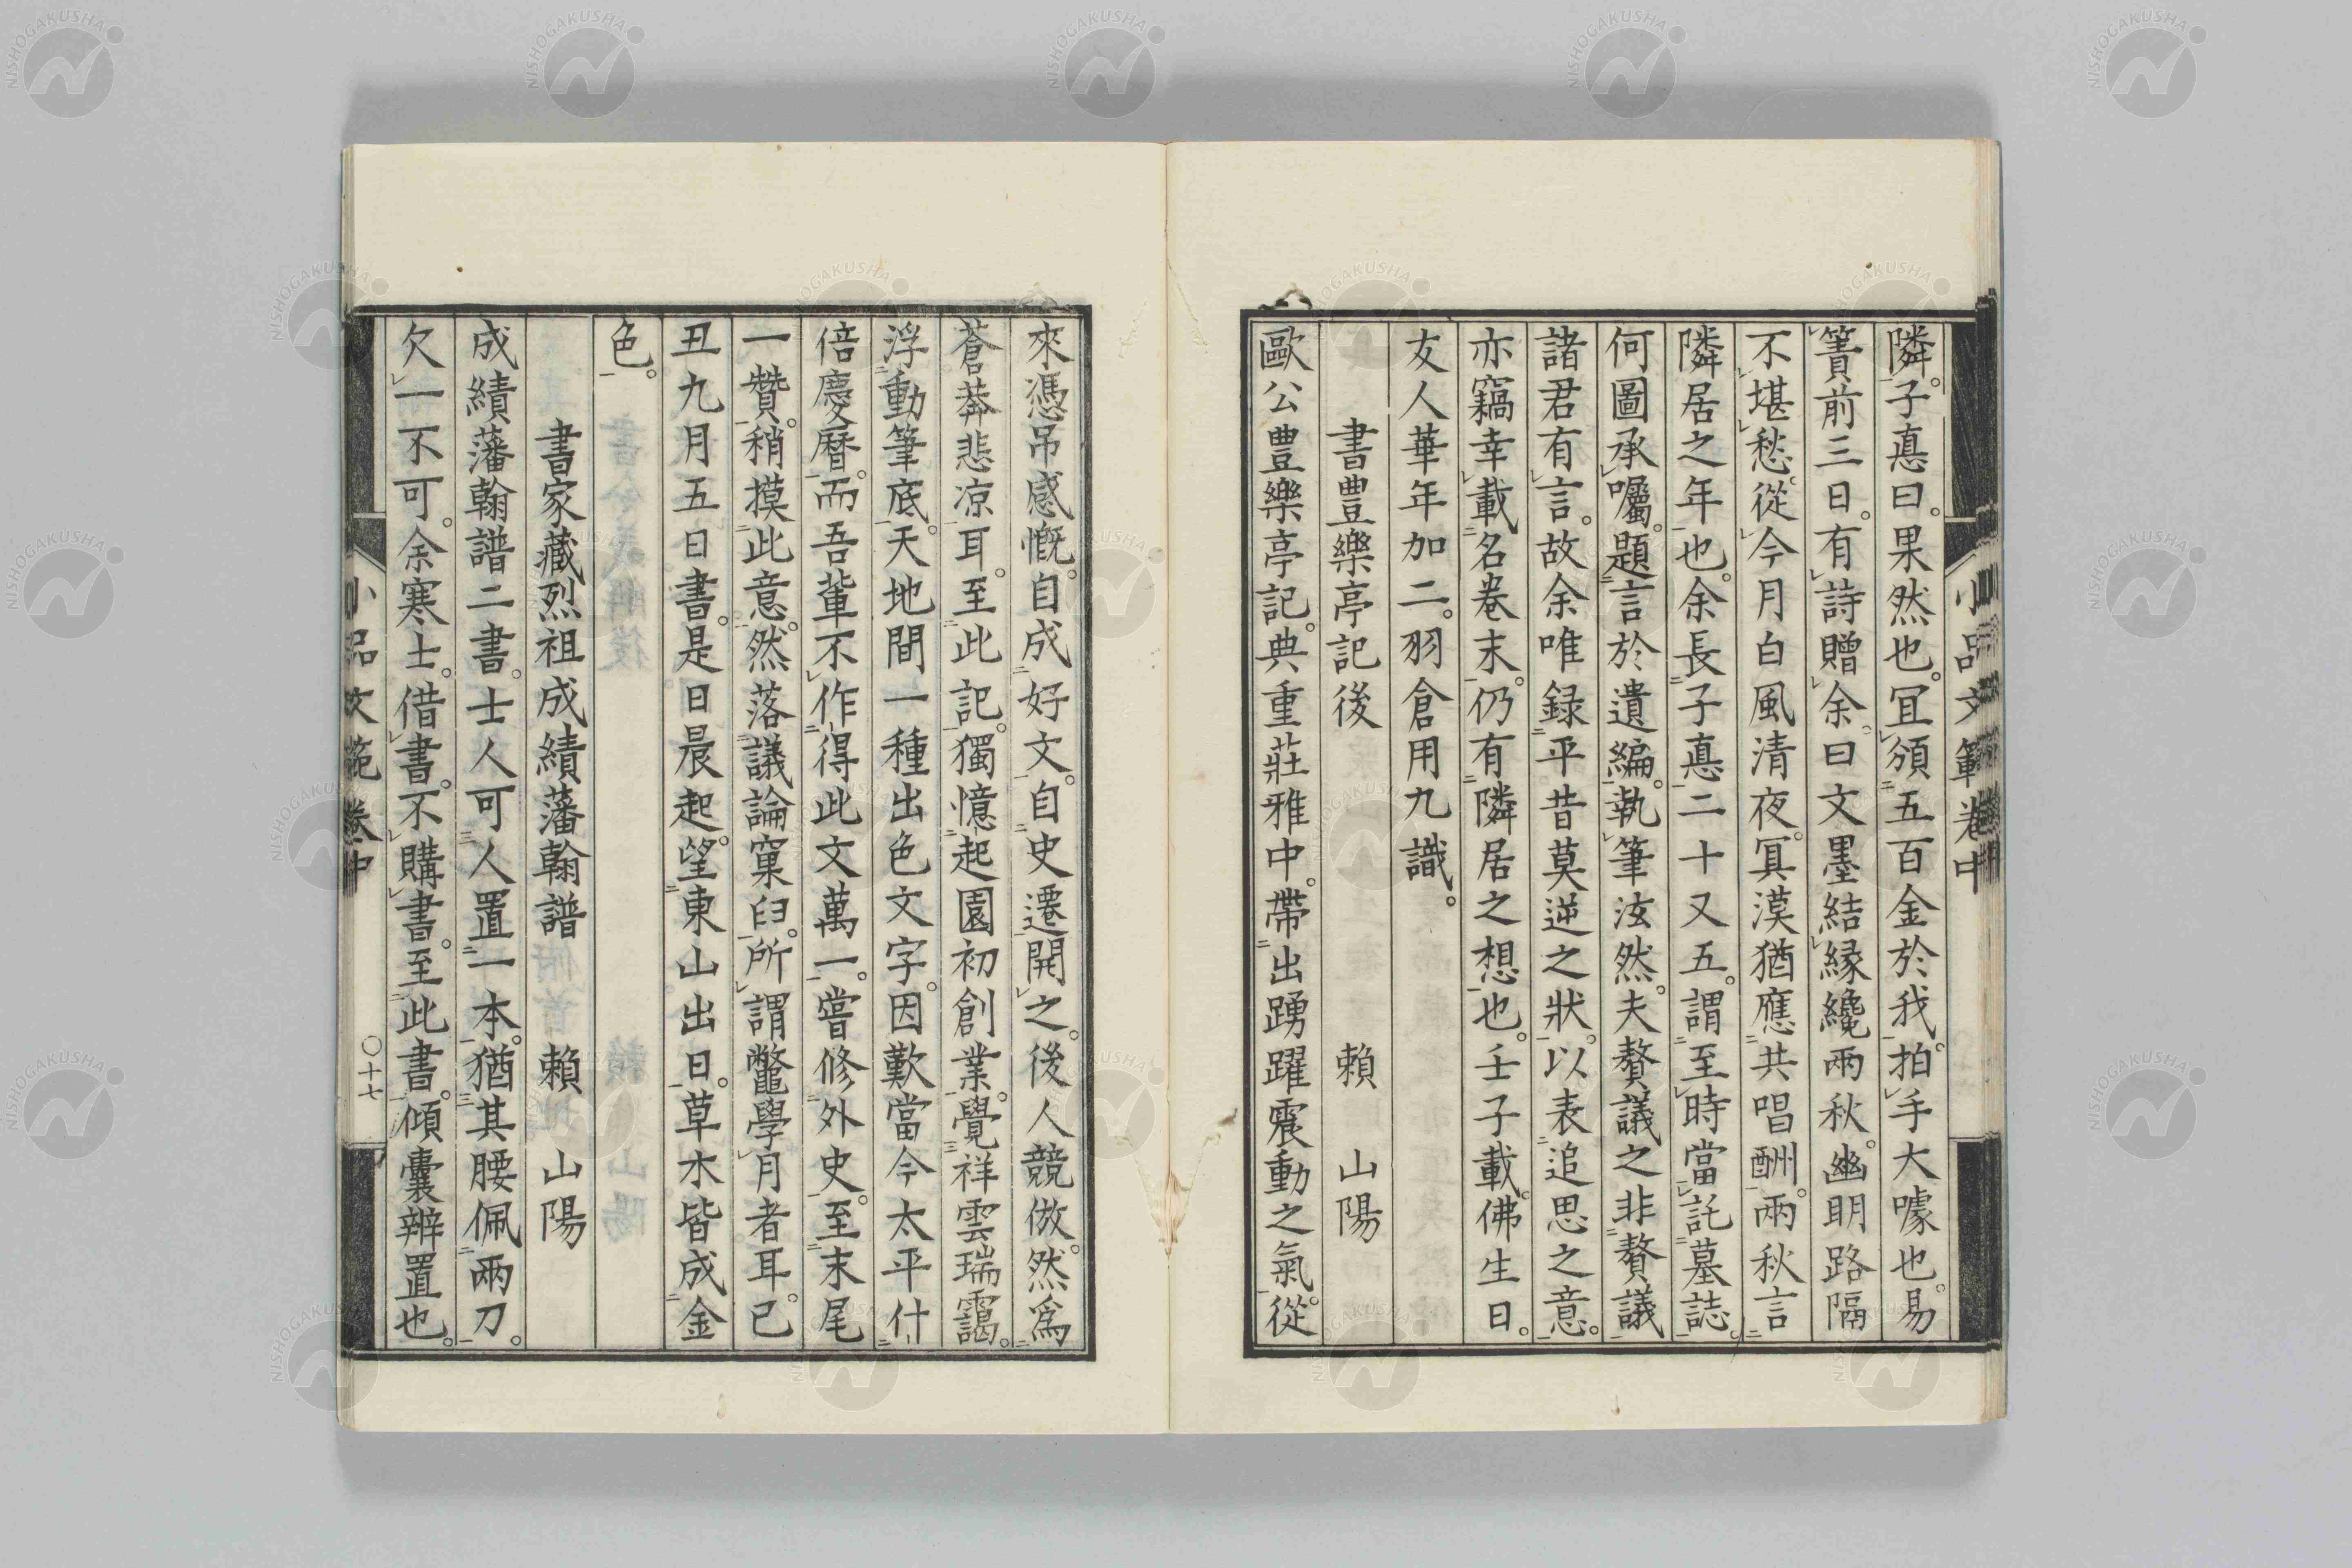 小品文範卷中
隣。子悳曰。果然也。冝頒五百金於我。拍手大噱也。易
簀前三日。有詩贈余。曰文墨結縁纔兩秋。幽明路隔
不堪愁。從今月白風清夜。冥漠猶應共唱酬。兩秋言
隣居之年也。余長子悳二十又五。謂至時當託墓誌。
何圖承囑。題言於遺編。執筆泫然。夫贅議之非贅議
諸君有言。故余唯録平昔莫逆之狀。以表追思之意。
亦竊幸載名卷末。仍有隣居之想也。壬子載。佛生日。
友人華年加二。羽倉用九識。
書豊樂亭記後　賴　山陽
歐公豊樂亭記。典重莊雅中。帶出踴躍震動之氣。從
來憑吊感慨。自成好文。自史遷開之。後人競倣。然爲
蒼莽悲凉耳。至此記。獨憶起園初創業。覺祥雲瑞靄。
浮動筆底。天地間一種出色文字。因歎當今太平什
倍慶曆。而吾輩不作得此文萬一。嘗修外史。至末尾
一贊。稍摸此意。然落議論窠臼。所謂鼈學月者耳。已
丑九月五日書。是日晨起。望東山出日。草木皆成金
色。
書家藏烈祖成績藩翰譜　賴　山陽
成績藩翰譜二書。士人可人置一本。猶其腰佩兩刀。
欠一不可。余寒士。借書。不購書。至此書。傾囊辨置也。
小品文範卷中
〇十七
NISHOGAKUSHA